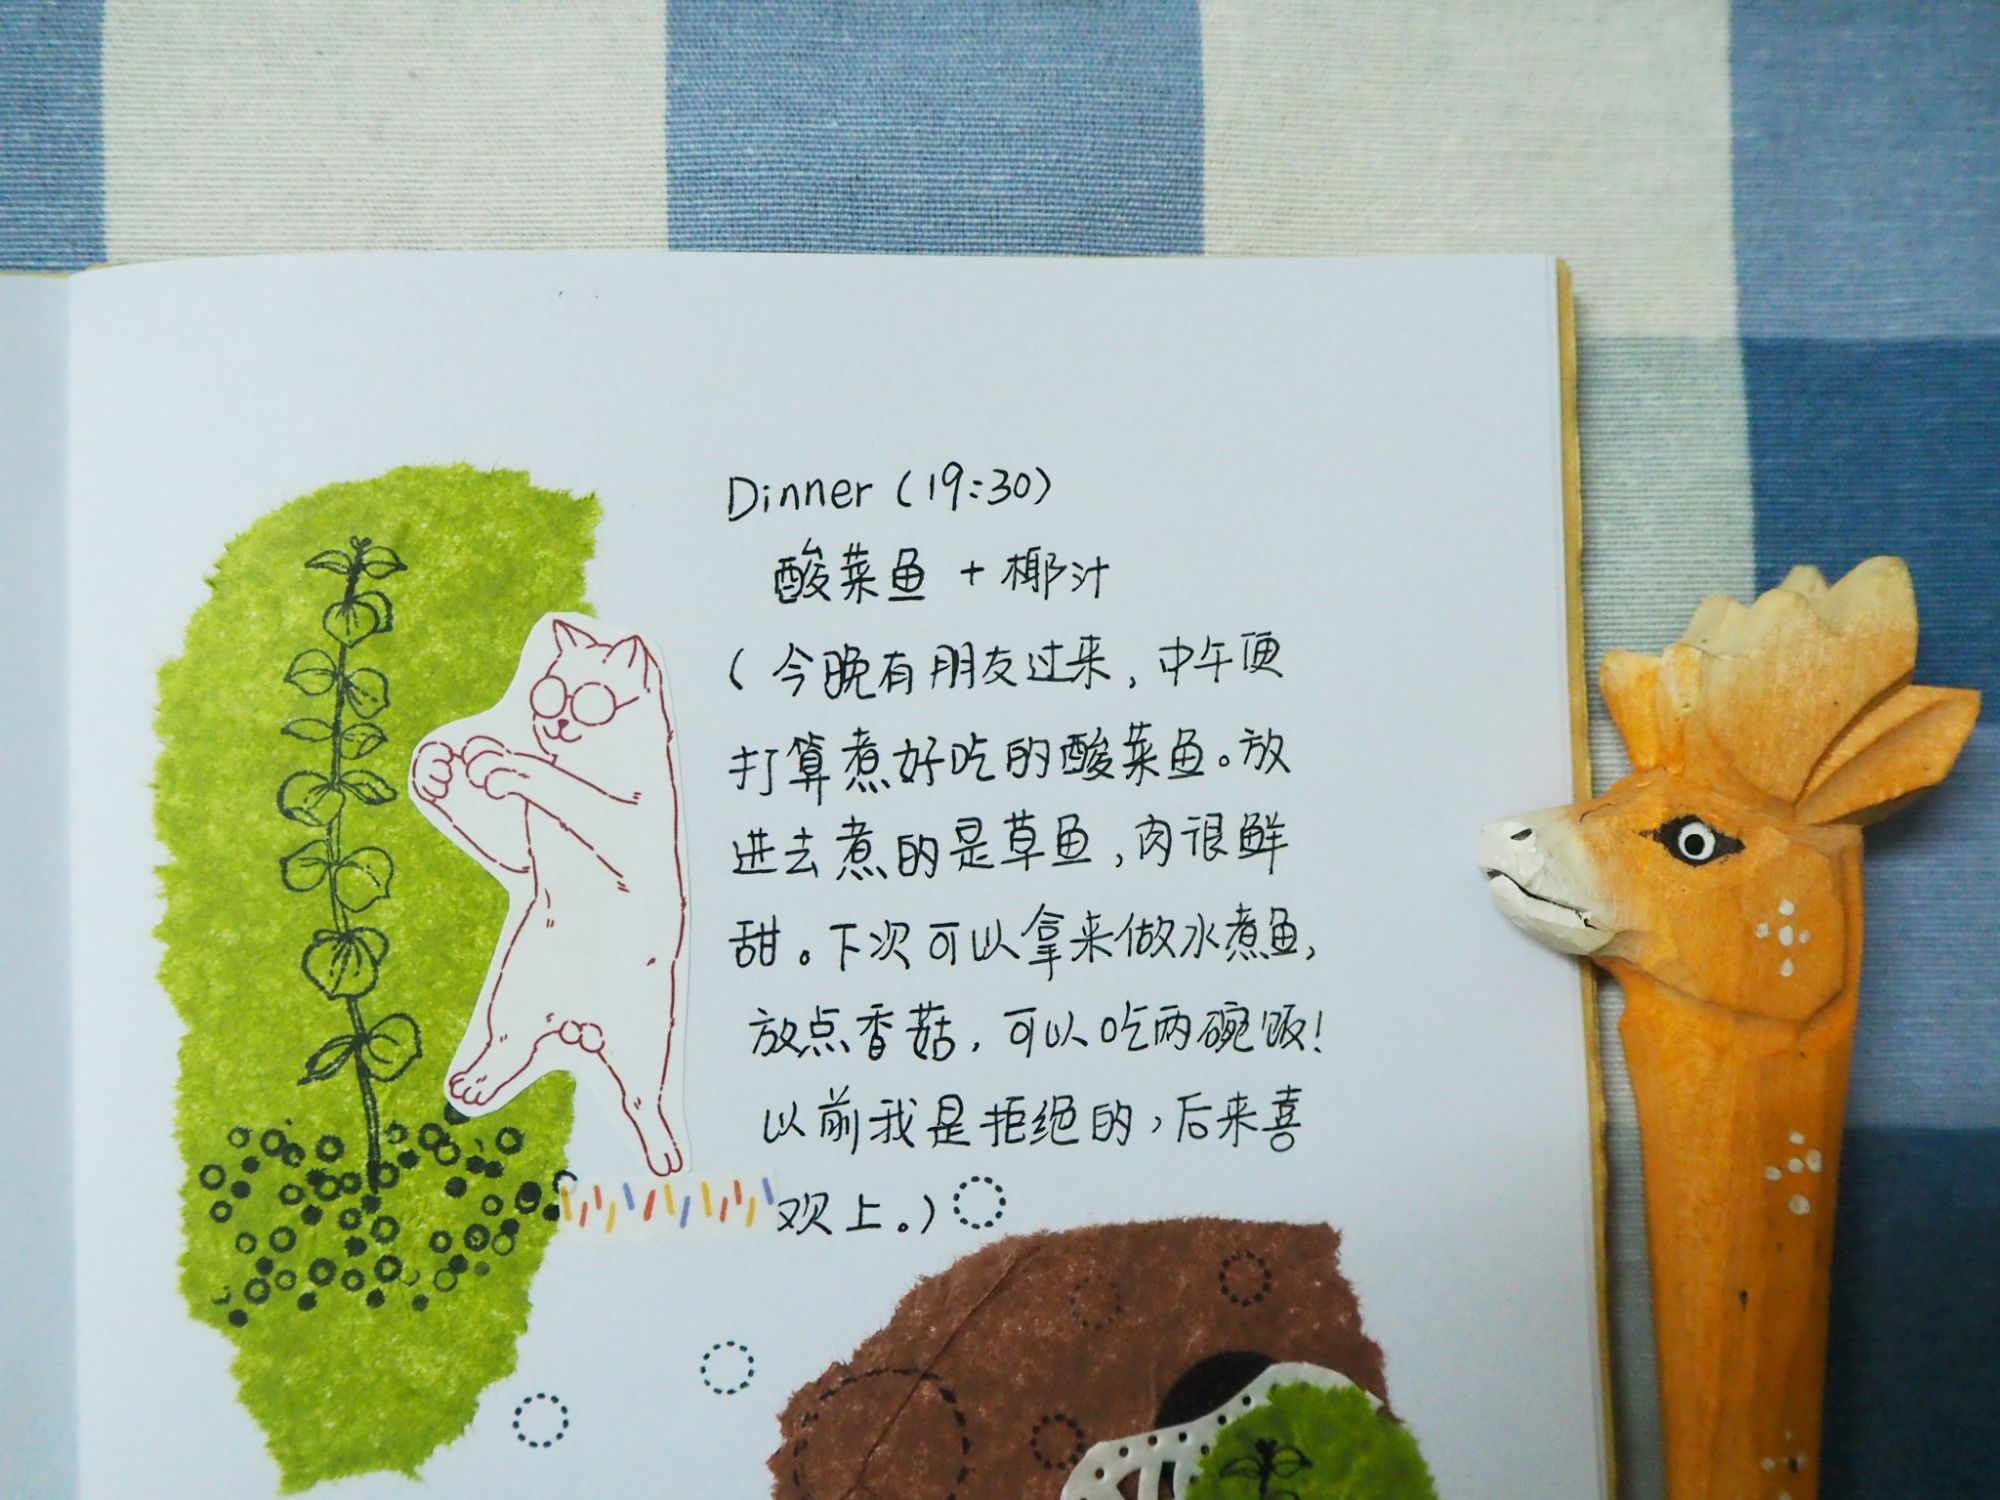 Dinner (19:30)
酸菜鱼 + 椰汁
(今晚有朋友过来,中午便
打算煮好吃的酸菜鱼。放
进去煮的是草鱼,肉很鲜
甜。下次可以拿来做水煮鱼,
放点香菇,可以吃两碗饭!
以前我是拒绝的,后来喜
欢上。)